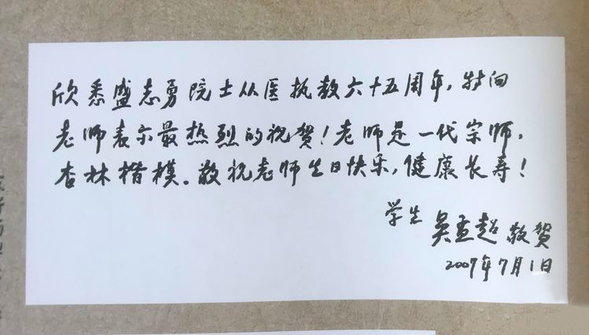 欣悉盛志勇院士从医执教六十五周年,特向
老师表示最热烈的祝贺!老师是一代宗师,
杏林楷模。敬祝老师生日快乐,健康长寿!
学生 吴孟超 敬贺
2007年7月1日